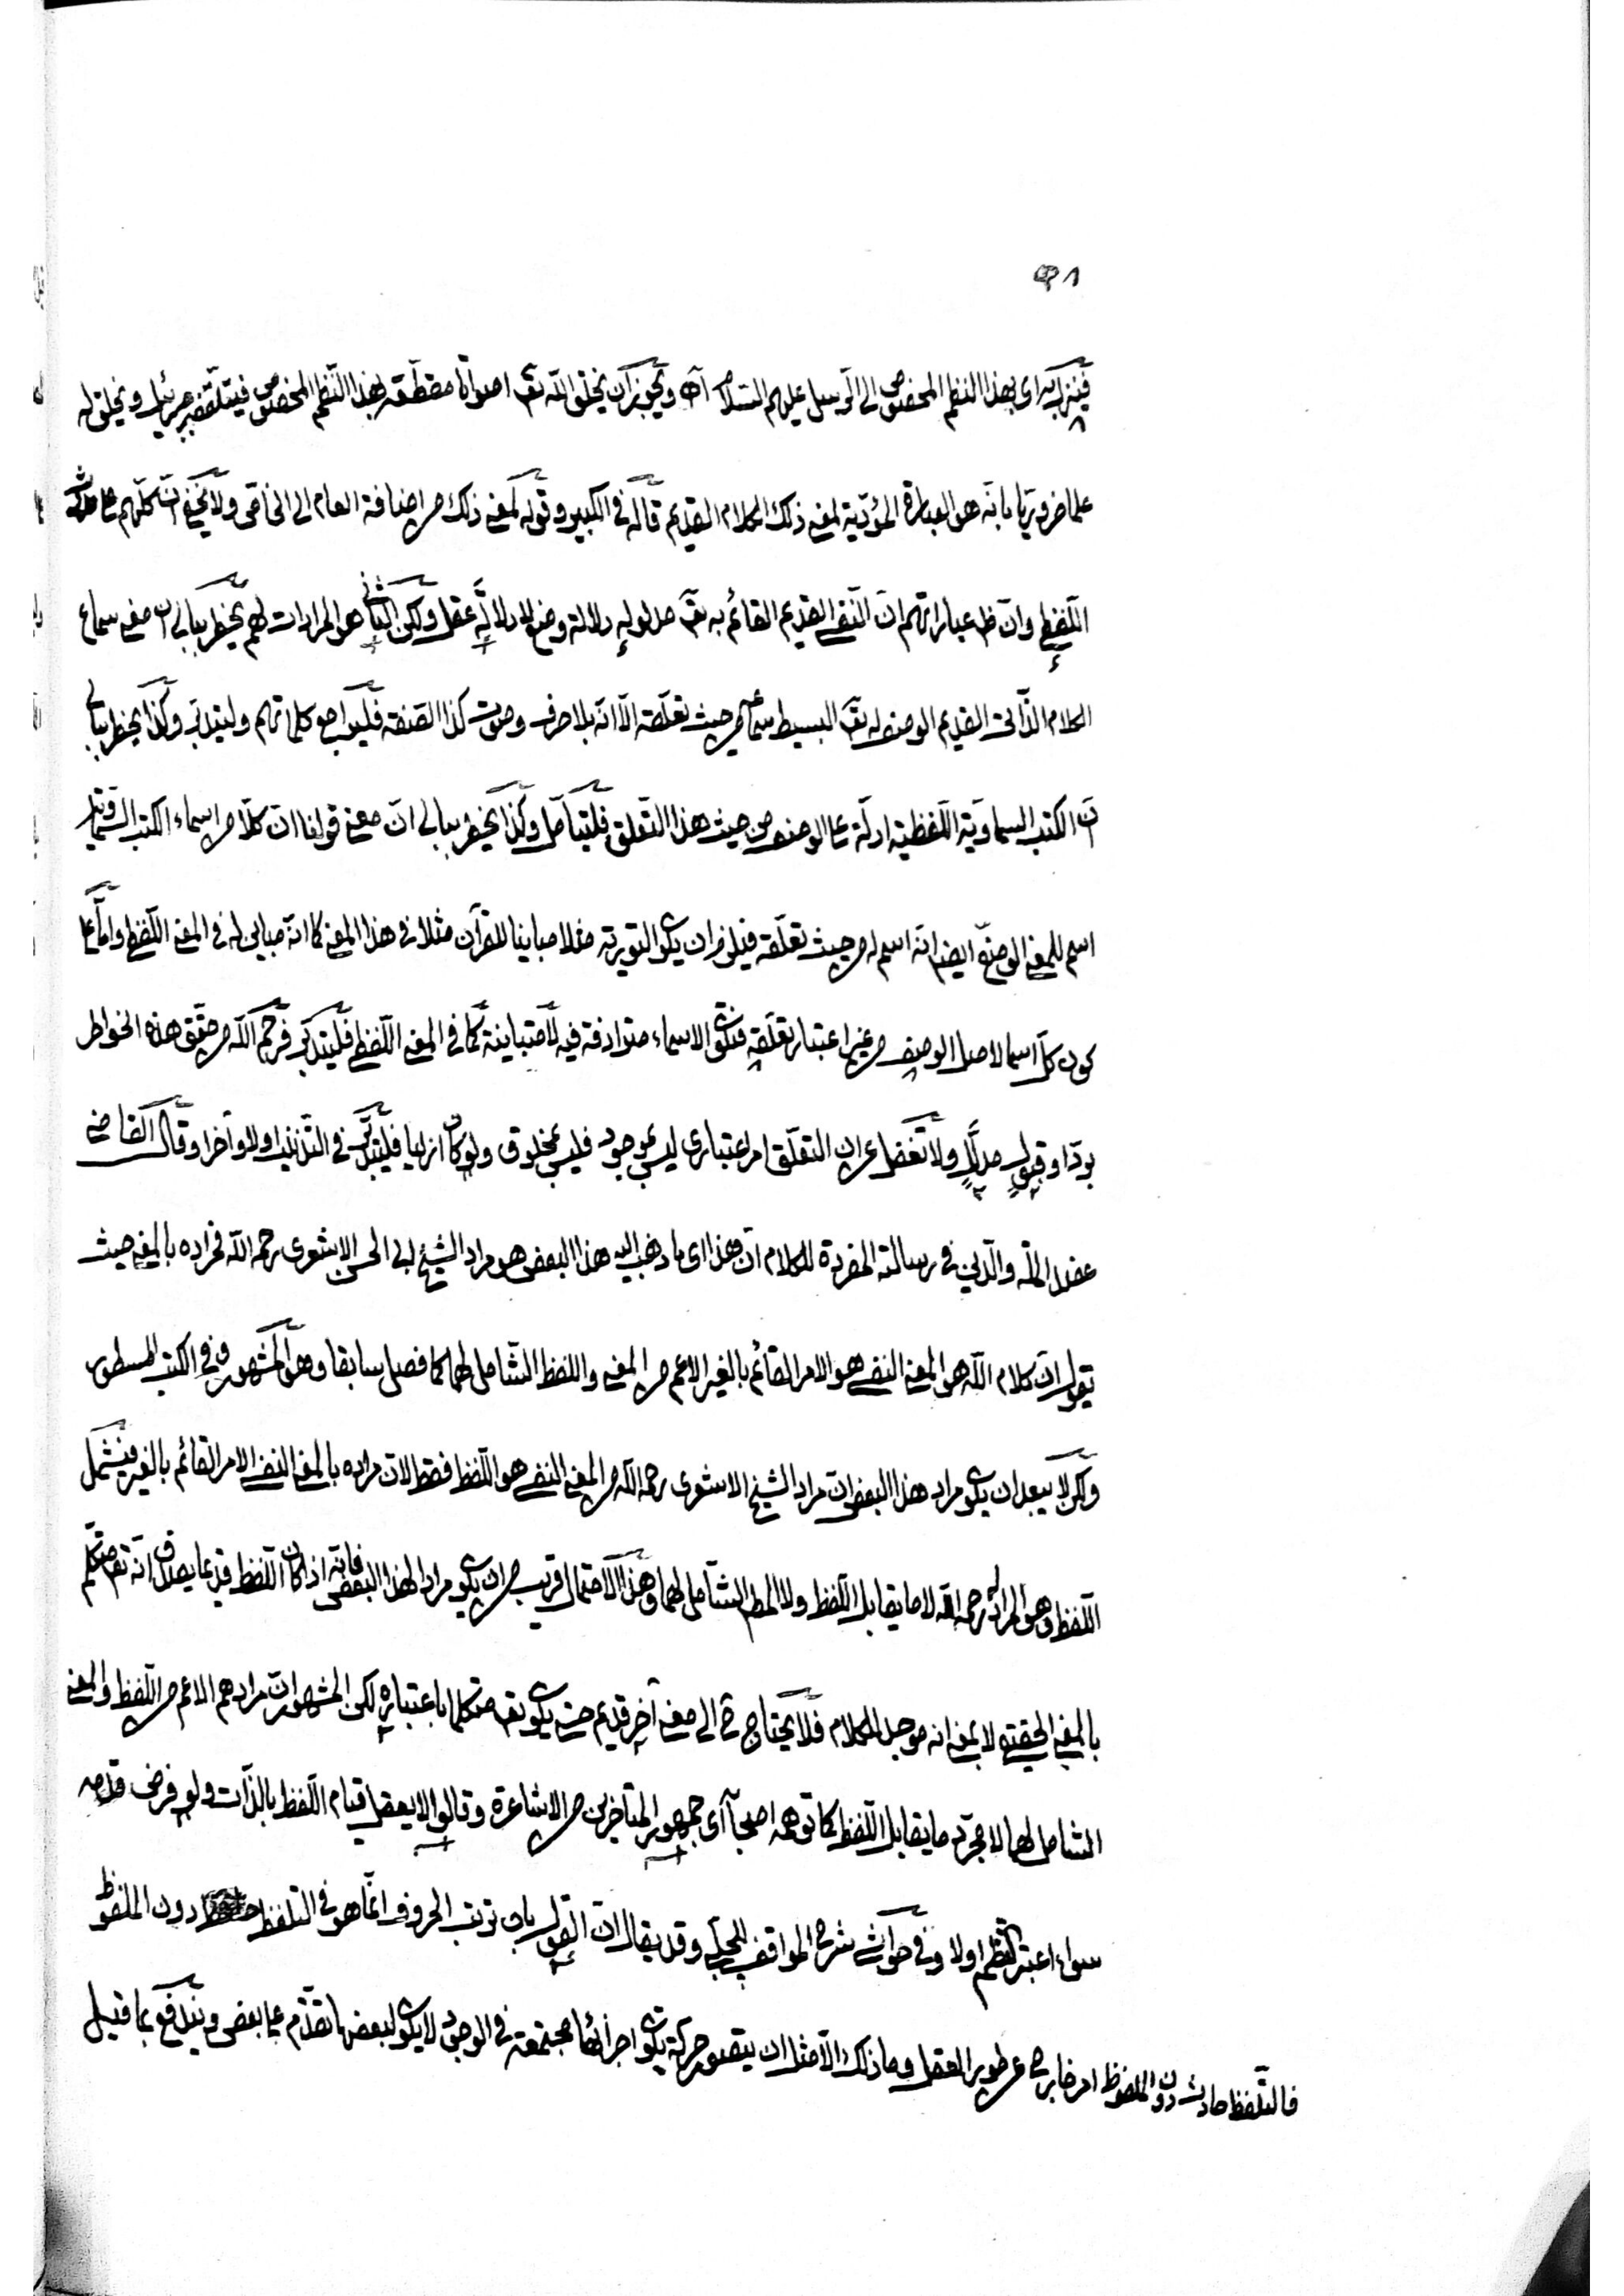 ٩١
فينزل به اى بهذا النظم المخصوص الى الرسل عليهم السلام اه ويجوز ان يخلق الله تعـ اصواتا مقطعة بهذا النظم المخصوص فيتلقفه جبرئيل ويخلق له
علما ضروريا بانه هو العبارة المؤدية لمعنى ذلك الكلام القديم قاله في الكبير وقوله لمعنى ذلك من اضافة العام الى الخاص ولا يخفى ان كلامهم
اللفظى وان ظ عباراتهم ان النفسى القديم القائم به تعـ مدلوله دلالة وضع لا دلالة عقل ولكن الثانى هو المراد ثم يخطر ببالى ان معنى سماع
الكلام الذاتى القديم الوصف له تعـ البسيط سماعه من حيث تعلقه الا انه بلا حرف وصوت كذا الصفة فليراجع كلماتهم وليتدبر وكذا يخطر ببالى
ان الكتب السماوية اللفظية ادلة على الوصف من حيث هذا التعلق فليتأمل وكذا يخطر ببالى ان معنى قولنا ان كلا من اسماء الكتب السماوية
اسم للمعنى الوصفى ايضا انه اسم له من حيث تعلقه فيلزم ان يكون التورية مثلا مباينا للقرآن مثلا في هذا المعنى كما انه مباين له في المعنى اللفظى واما على
كون كل اسما لاصل الوصف من غير اعتبار تعلقه فتكون الاسماء مترادفة فيه لا متباينة كما في المعنى اللفظى فليتدبر فرحم الله من حقق هذه الخواطر
بردّ او قبول مدلّلٍ ولا تغفل عن ان التعلق امر اعتبارى ليس بموجود فليس بمخلوق ولو كان ازليا فليتدبر في التذنيب اولا وآخرا وقال القاضى
عضد الملة والدين في رسالته المفردة للكلام ان هذا اى ما ذهب اليه هذا البعض هو مراد الشيخ ابى الحسن الاشعرى رحمه الله فمراده بالمعنى حيث
يقول ان كلام الله هو المعنى النفسى هو الامر القائم بالغير الاعم من المعنى واللفظ الشامل لهما كما فصل سابقا وهو المشهور في الكتب المسطور
ولكن لا يبعد ان يكون مراد هذا البعض ان مراد الشيخ الاشعرى رحمه الله من المعنى النفسى هو اللفظ فقط لان مراده بالمعنى النفسى الامر القائم بالغير فيشمل
اللفظ وهو المراد له رحمه الله لا ما يقابل اللفظ ولا المط الشامل لهما وهذا الاحتمال قريب من ان يكون مرادا لهذا البعض فانه اذا كان اللفظ قديما يصدق انه تعـ متكلم
بالمعنى الحقيقى لا بمعنى انه موجد للكلام فلا يحتاج ح الى معنى آخر قديم حتى يكون تعـ متكلما باعتباره لكن المشهور ان مرادهم الاعم من اللفظ والمعنى
الشامل لهما لا مجرد ما يقابل اللفظ كما توهمه اصحابنا اى جمهور المتأخرين من الاشاعرة وقالوا لا يعقل قيام اللفظ بالذات ولو فرض قدمه
سواء اعتبر النظم اولا وفى حواشى شرح المواقف للچلبى وقد يقال ان القول بان ترتب الحروف انما هو في التلفظ دون الملفوظ
فالتلفظ حادث دون الملفوظ امر خارج عن طور العقل وما ذلك الا مثل ان يتصور حركة تكون اجزائها مجتمعة في الوجود لا يكون لبعضها تقدم على بعض ويندفع بما قيل